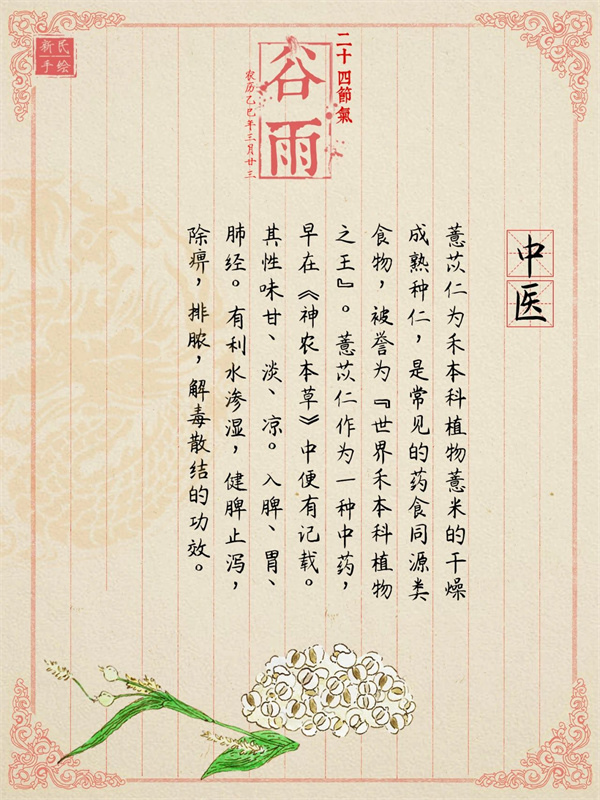 新民
手绘
二十四節氣
谷雨
农历乙巳年三月廿三
中医
薏苡仁为禾本科植物薏米的干燥
成熟种仁，是常见的药食同源类
食物，被誉为『世界禾本科植物
之王』。薏苡仁作为一种中药，
早在《神农本草》中便有记载。
其性味甘、淡、凉。入脾、胃、
肺经。有利水渗湿，健脾止泻，
除痹，排脓，解毒散结的功效。